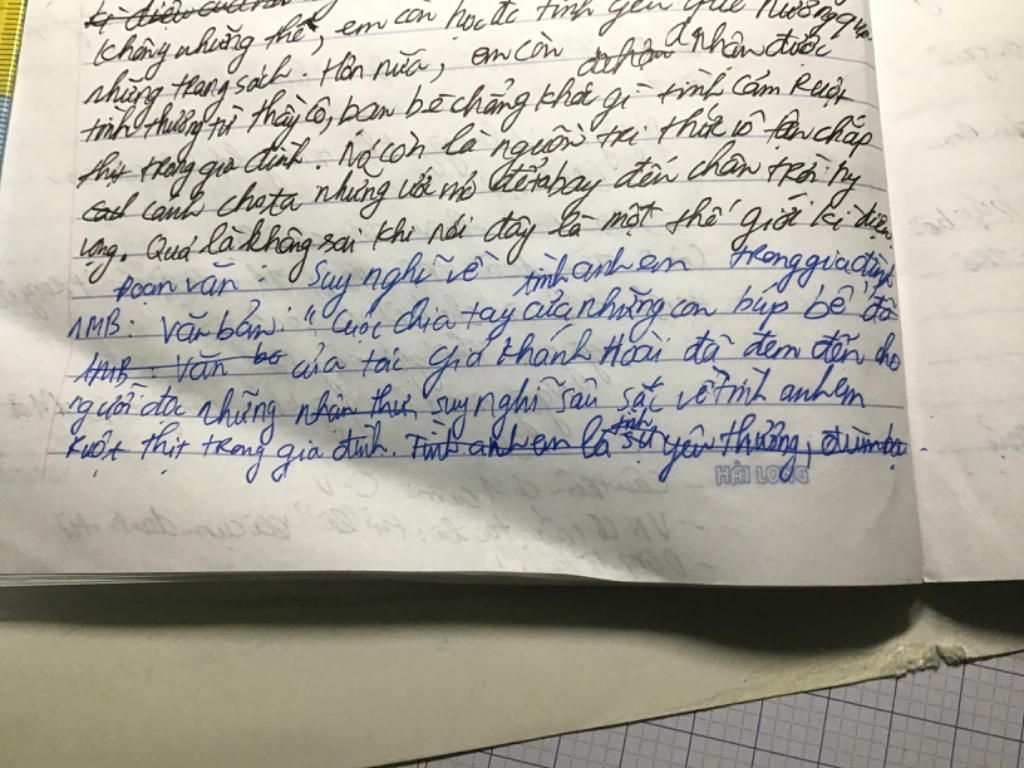 kì diệu của
không những thế, em còn học đc tình yêu quê hương qua
những trang sách. Hơn nữa, em còn nhận được
tình thương từ thầy cô, bạn bè chẳng khác gì tình cảm ruột
thịt trong gia đình. Nó còn là nguồn tri thức vô tận chắp
cánh cho ta những ước mơ để ta bay đến chân trời hy
vọng. Quả là không sai khi nói đây là một thế giới kì diệu
Đoạn văn: Suy nghĩ về tình anh em trong gia đình
1MB: Văn bản: "Cuộc chia tay của những con búp bê" đã
1MB: Văn bả của tác giả Khánh Hoài đã đem đến cho
người đọc những nhận thức, suy nghĩ sâu sắc về tình anh em
ruột thịt trong gia đình. Tình anh em là tình sự yêu thương, đùm bọc
HẢI LONG